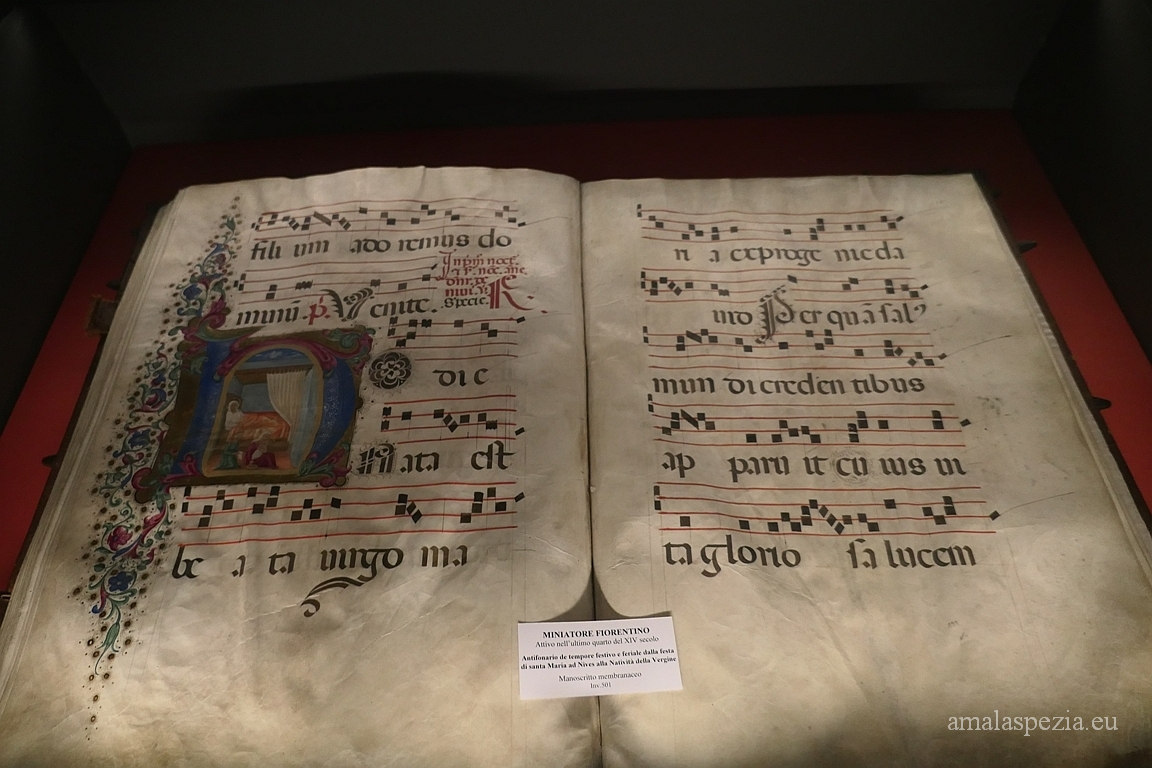 fili um ado remus do
minū. p̄. Venite.
specie. R.
di e
Nata est
be a ta uirgo ma
ri a ex proge nie da
uid Per quā sal
mun di creden tibus
ap paru it cu ius ui
ta glorio sa lucem
MINIATORE FIORENTINO
Attivo nell'ultimo quarto del XIV secolo
Antifonario de tempore festivo e feriale dalla festa
di santa Maria ad Nives alla Natività della Vergine
Manoscritto membranaceo
Inv.501
amalaspezia.eu